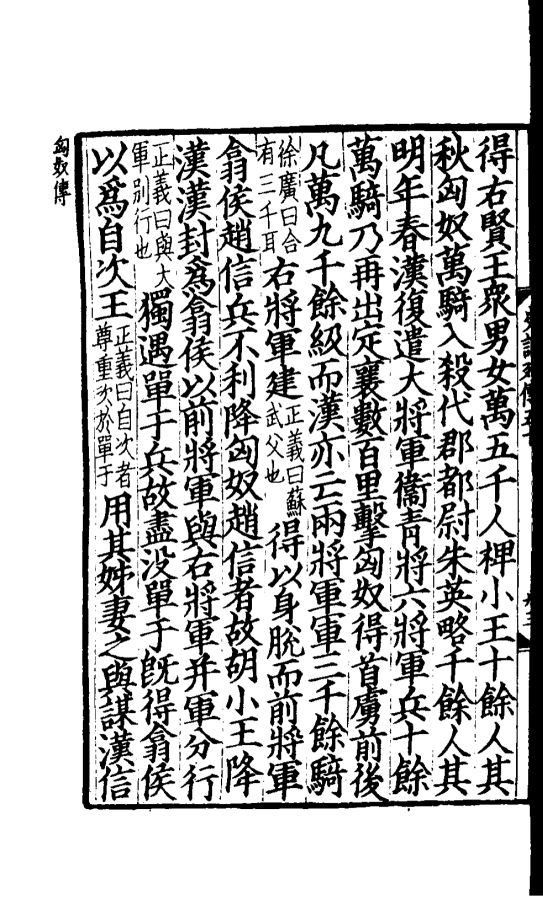 得右賢王衆男女萬五千人裨小王十餘人其
秋匈奴萬騎入殺代郡都尉朱英略千餘人其
明年春漢復遣大將軍衞青將六將軍兵十餘
萬騎乃再出定襄數百里擊匈奴得首虜前後
凡萬九千餘級而漢亦亡兩將軍軍三千餘騎
徐廣曰合有三千耳右將軍建正義曰蘇武父也得以身脫而前將軍
翕侯趙信兵不利降匈奴趙信者故胡小王降
漢漢封爲翕侯以前將軍與右將軍并軍分行
正義曰與大軍別行也獨遇單于兵故盡没單于旣得翕侯
以爲自次王正義曰自次者尊重次於單于用其姊妻之與謀漢信
匈奴傳